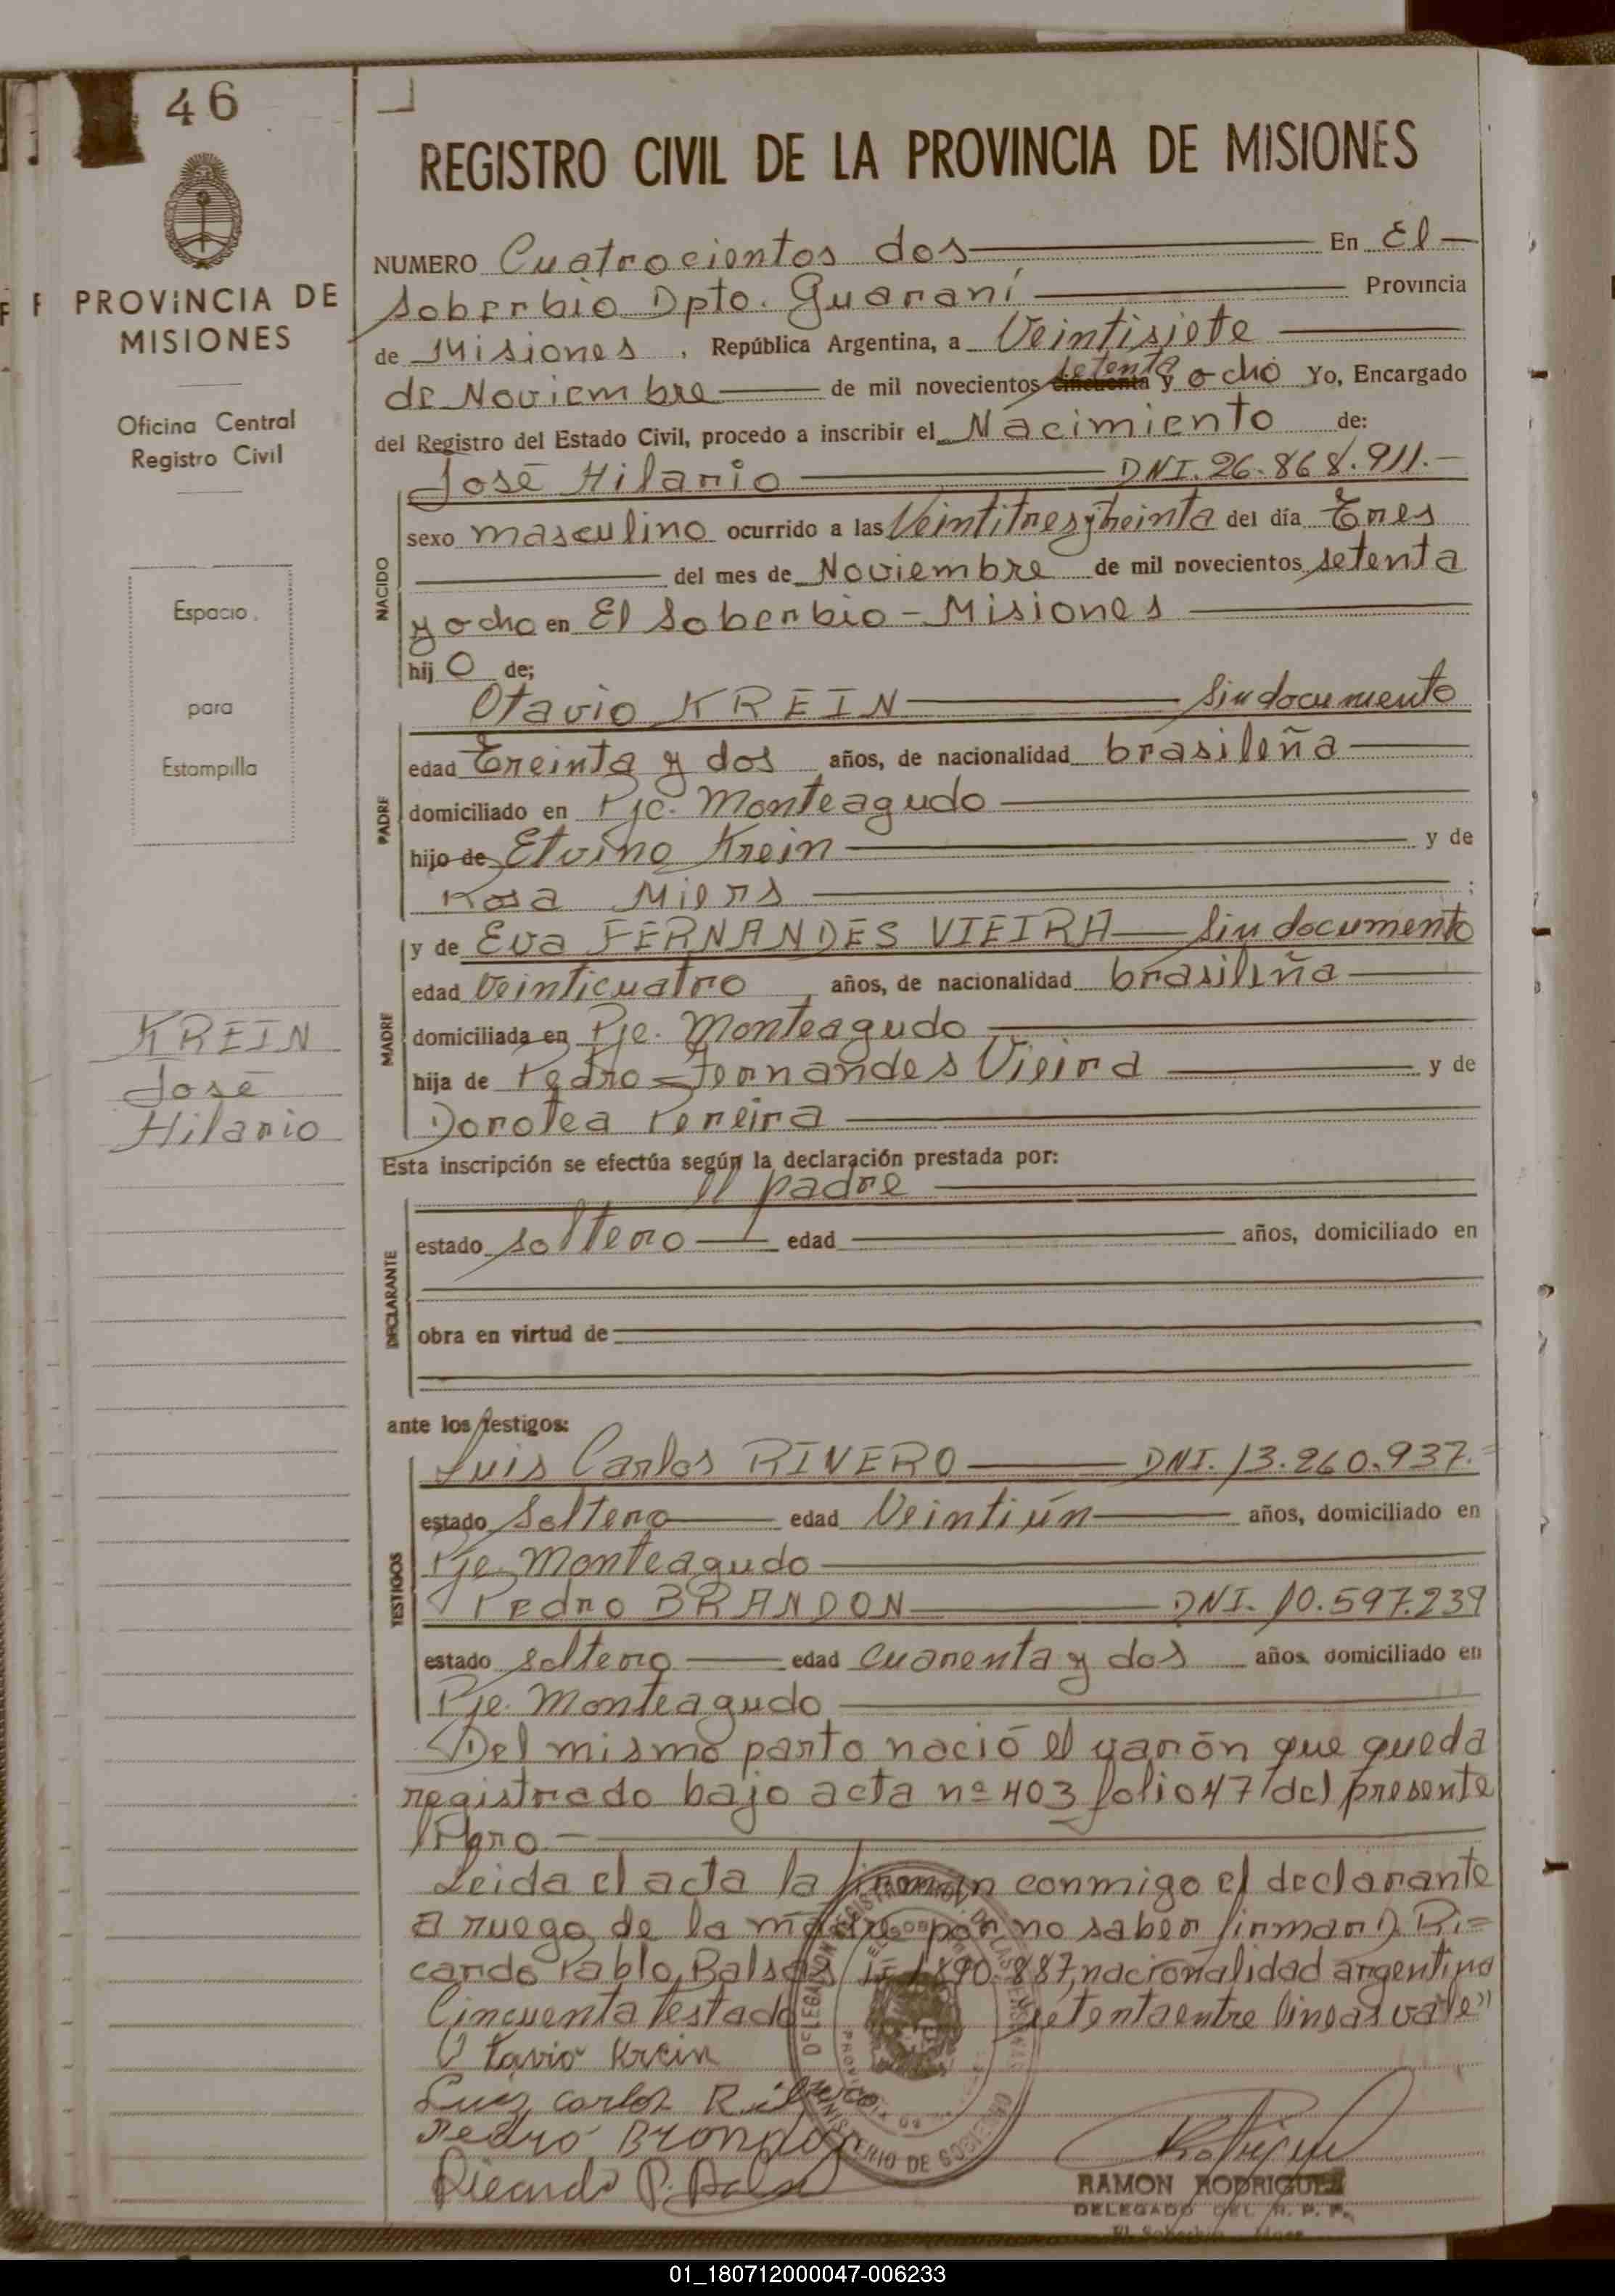 46
REGISTRO CIVIL DE LA PROVINCIA DE MISIONES
PROVINCIA DE
MISIONES
Oficina Central
Registro Civil
Espacio
para
Estampilla
KREIN
José
Hilario
NUMERO Cuatrocientos dos En El
Soberbio Dpto. Guaraní Provincia
de Misiones, República Argentina, a Veintisiete
de Noviembre de mil novecientos cincuenta setenta y ocho Yo, Encargado
del Registro del Estado Civil, procedo a inscribir el Nacimiento de:
José Hilario DNI. 26.868.911.-
NACIDO
sexo masculino ocurrido a las Veintitres y treinta del día Tres
del mes de Noviembre de mil novecientos setenta
y ocho en El Soberbio - Misiones
hij o de;
Otavio KREIN Sin documento
PADRE
edad Treinta y dos años, de nacionalidad brasileña
domiciliado en Pje. Monteagudo
hijo de Etvino Krein y de
Rosa Miers ;
y de Eva FERNANDES VIEIRA Sin documento
MADRE
edad Veinticuatro años, de nacionalidad brasileña
domiciliada en Pje. Monteagudo
hija de Pedro Fernandes Vieira y de
Dorotea Pereira
Esta inscripción se efectúa según la declaración prestada por:
el padre
DECLARANTE
estado soltero edad años, domiciliado en
obra en virtud de
ante los testigos:
Luis Carlos RIVERO DNI. 13.260.937.
TESTIGOS
estado Soltero edad Veintiún años, domiciliado en
Pje. Monteagudo
Pedro BRANDON DNI. 10.597.239
estado soltero edad cuarenta y dos años domiciliado en
Pje. Monteagudo
Del mismo parto nació el varón que queda
registrado bajo acta nº 403 folio 47 del presente
libro.-
Leida el acta la firman conmigo el declarante
a ruego de la madre por no saber firmar D. Ri=
cardo Pablo Balsas 890.887, nacionalidad argentino
Cincuenta testado setenta entre lineas vale"
Otavio Krein
Luiz carlos
Pedro
Ricardo P.
MINISTERIO DE GOBIERNO
RAMON RODRIGUEZ
DELEGADO DEL R. P. P.
El Soberbio
01_180712000047-006233